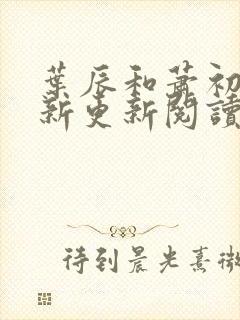 葉辰和蕭初
新更新閱讀
待到晨光熹微